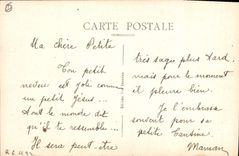 CARTE POSTALE
Ma chère Petite
Ton petit
neveu est joli comme
un petit Jésus ...
tout le monde dit
qu'il te ressemble ...
Il sera peut-être
très sage plus tard,
mais pour le moment
il pleure bien.
Je l'embrasse
souvent pour sa
petite
Maman